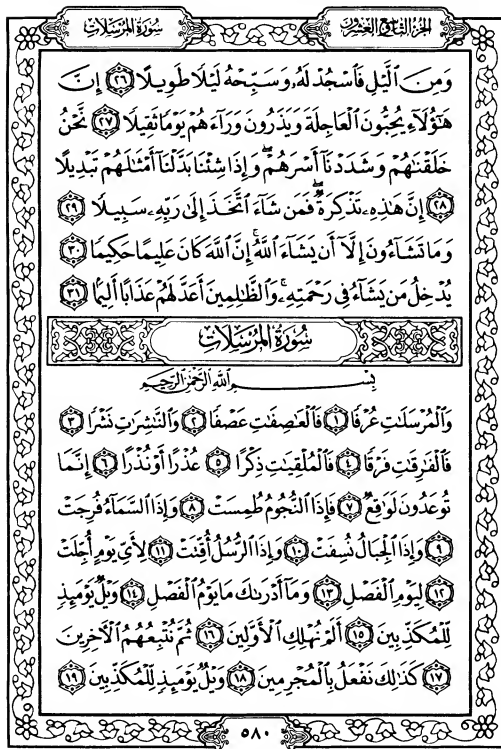 الجزء التاسع والعشرون
سُورَةُ المُرسَلَات
وَمِنَ ٱلَّيۡلِ فَٱسۡجُدۡ لَهُۥ وَسَبِّحۡهُ لَيۡلٗا طَوِيلًا ٢٦ إِنَّ
هَٰٓؤُلَآءِ يُحِبُّونَ ٱلۡعَاجِلَةَ وَيَذَرُونَ وَرَآءَهُمۡ يَوۡمٗا ثَقِيلٗا ٢٧ نَّحۡنُ
خَلَقۡنَٰهُمۡ وَشَدَدۡنَآ أَسۡرَهُمۡۖ وَإِذَا شِئۡنَا بَدَّلۡنَآ أَمۡثَٰلَهُمۡ تَبۡدِيلًا
٢٨ إِنَّ هَٰذِهِۦ تَذۡكِرَةٞۖ فَمَن شَآءَ ٱتَّخَذَ إِلَىٰ رَبِّهِۦ سَبِيلٗا ٢٩
وَمَا تَشَآءُونَ إِلَّآ أَن يَشَآءَ ٱللَّهُۚ إِنَّ ٱللَّهَ كَانَ عَلِيمًا حَكِيمٗا ٣٠
يُدۡخِلُ مَن يَشَآءُ فِي رَحۡمَتِهِۦۚ وَٱلظَّٰلِمِينَ أَعَدَّ لَهُمۡ عَذَابًا أَلِيمَۢا ٣١
سُورَةُ المُرسَلَات
بِسۡمِ ٱللَّهِ ٱلرَّحۡمَٰنِ ٱلرَّحِيمِ
وَٱلۡمُرۡسَلَٰتِ عُرۡفٗا ١ فَٱلۡعَٰصِفَٰتِ عَصۡفٗا ٢ وَٱلنَّٰشِرَٰتِ نَشۡرٗا ٣
فَٱلۡفَٰرِقَٰتِ فَرۡقٗا ٤ فَٱلۡمُلۡقِيَٰتِ ذِكۡرًا ٥ عُذۡرًا أَوۡ نُذۡرًا ٦ إِنَّمَا
تُوعَدُونَ لَوَٰقِعٞ ٧ فَإِذَا ٱلنُّجُومُ طُمِسَتۡ ٨ وَإِذَا ٱلسَّمَآءُ فُرِجَتۡ
٩ وَإِذَا ٱلۡجِبَالُ نُسِفَتۡ ١٠ وَإِذَا ٱلرُّسُلُ أُقِّتَتۡ ١١ لِأَيِّ يَوۡمٍ أُجِّلَتۡ
١٢ لِيَوۡمِ ٱلۡفَصۡلِ ١٣ وَمَآ أَدۡرَىٰكَ مَا يَوۡمُ ٱلۡفَصۡلِ ١٤ وَيۡلٞ يَوۡمَئِذٖ
لِّلۡمُكَذِّبِينَ ١٥ أَلَمۡ نُهۡلِكِ ٱلۡأَوَّلِينَ ١٦ ثُمَّ نُتۡبِعُهُمُ ٱلۡأٓخِرِينَ
١٧ كَذَٰلِكَ نَفۡعَلُ بِٱلۡمُجۡرِمِينَ ١٨ وَيۡلٞ يَوۡمَئِذٖ لِّلۡمُكَذِّبِينَ ١٩
٥٨٠